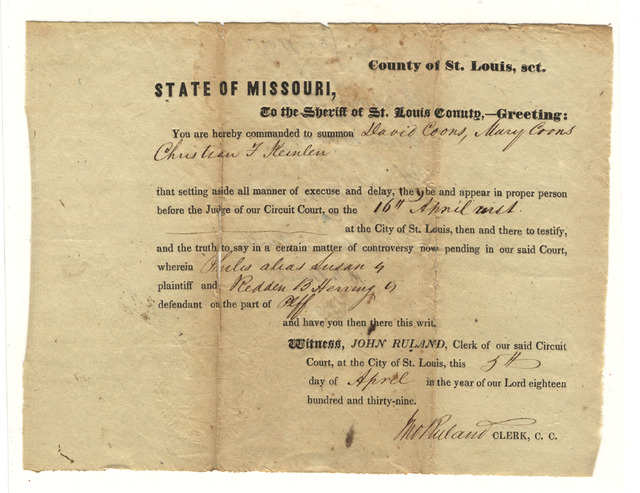 County of St. Louis, sct.
STATE OF MISSOURI,
To the Sheriff of St. Louis County,—Greeting:
You are hereby commanded to summon David Coons, Mary Coons
Christian F
that setting aside all manner of execuse and delay, they be and appear in proper person
before the Judge of our Circuit Court, on the 16th April inst.
at the City of St. Louis, then and there to testify,
and the truth to say in a certain matter of controversy now pending in our said Court,
wherein alias Susan is
plaintiff and Redden B Herring is
defendant on the part of Plff
and have you then there this writ.
Witness, JOHN RULAND, Clerk of our said Circuit
Court, at the City of St. Louis, this 5th
day of April in the year of our Lord eighteen
hundred and thirty-nine.
Jno Ruland CLERK, C. C.